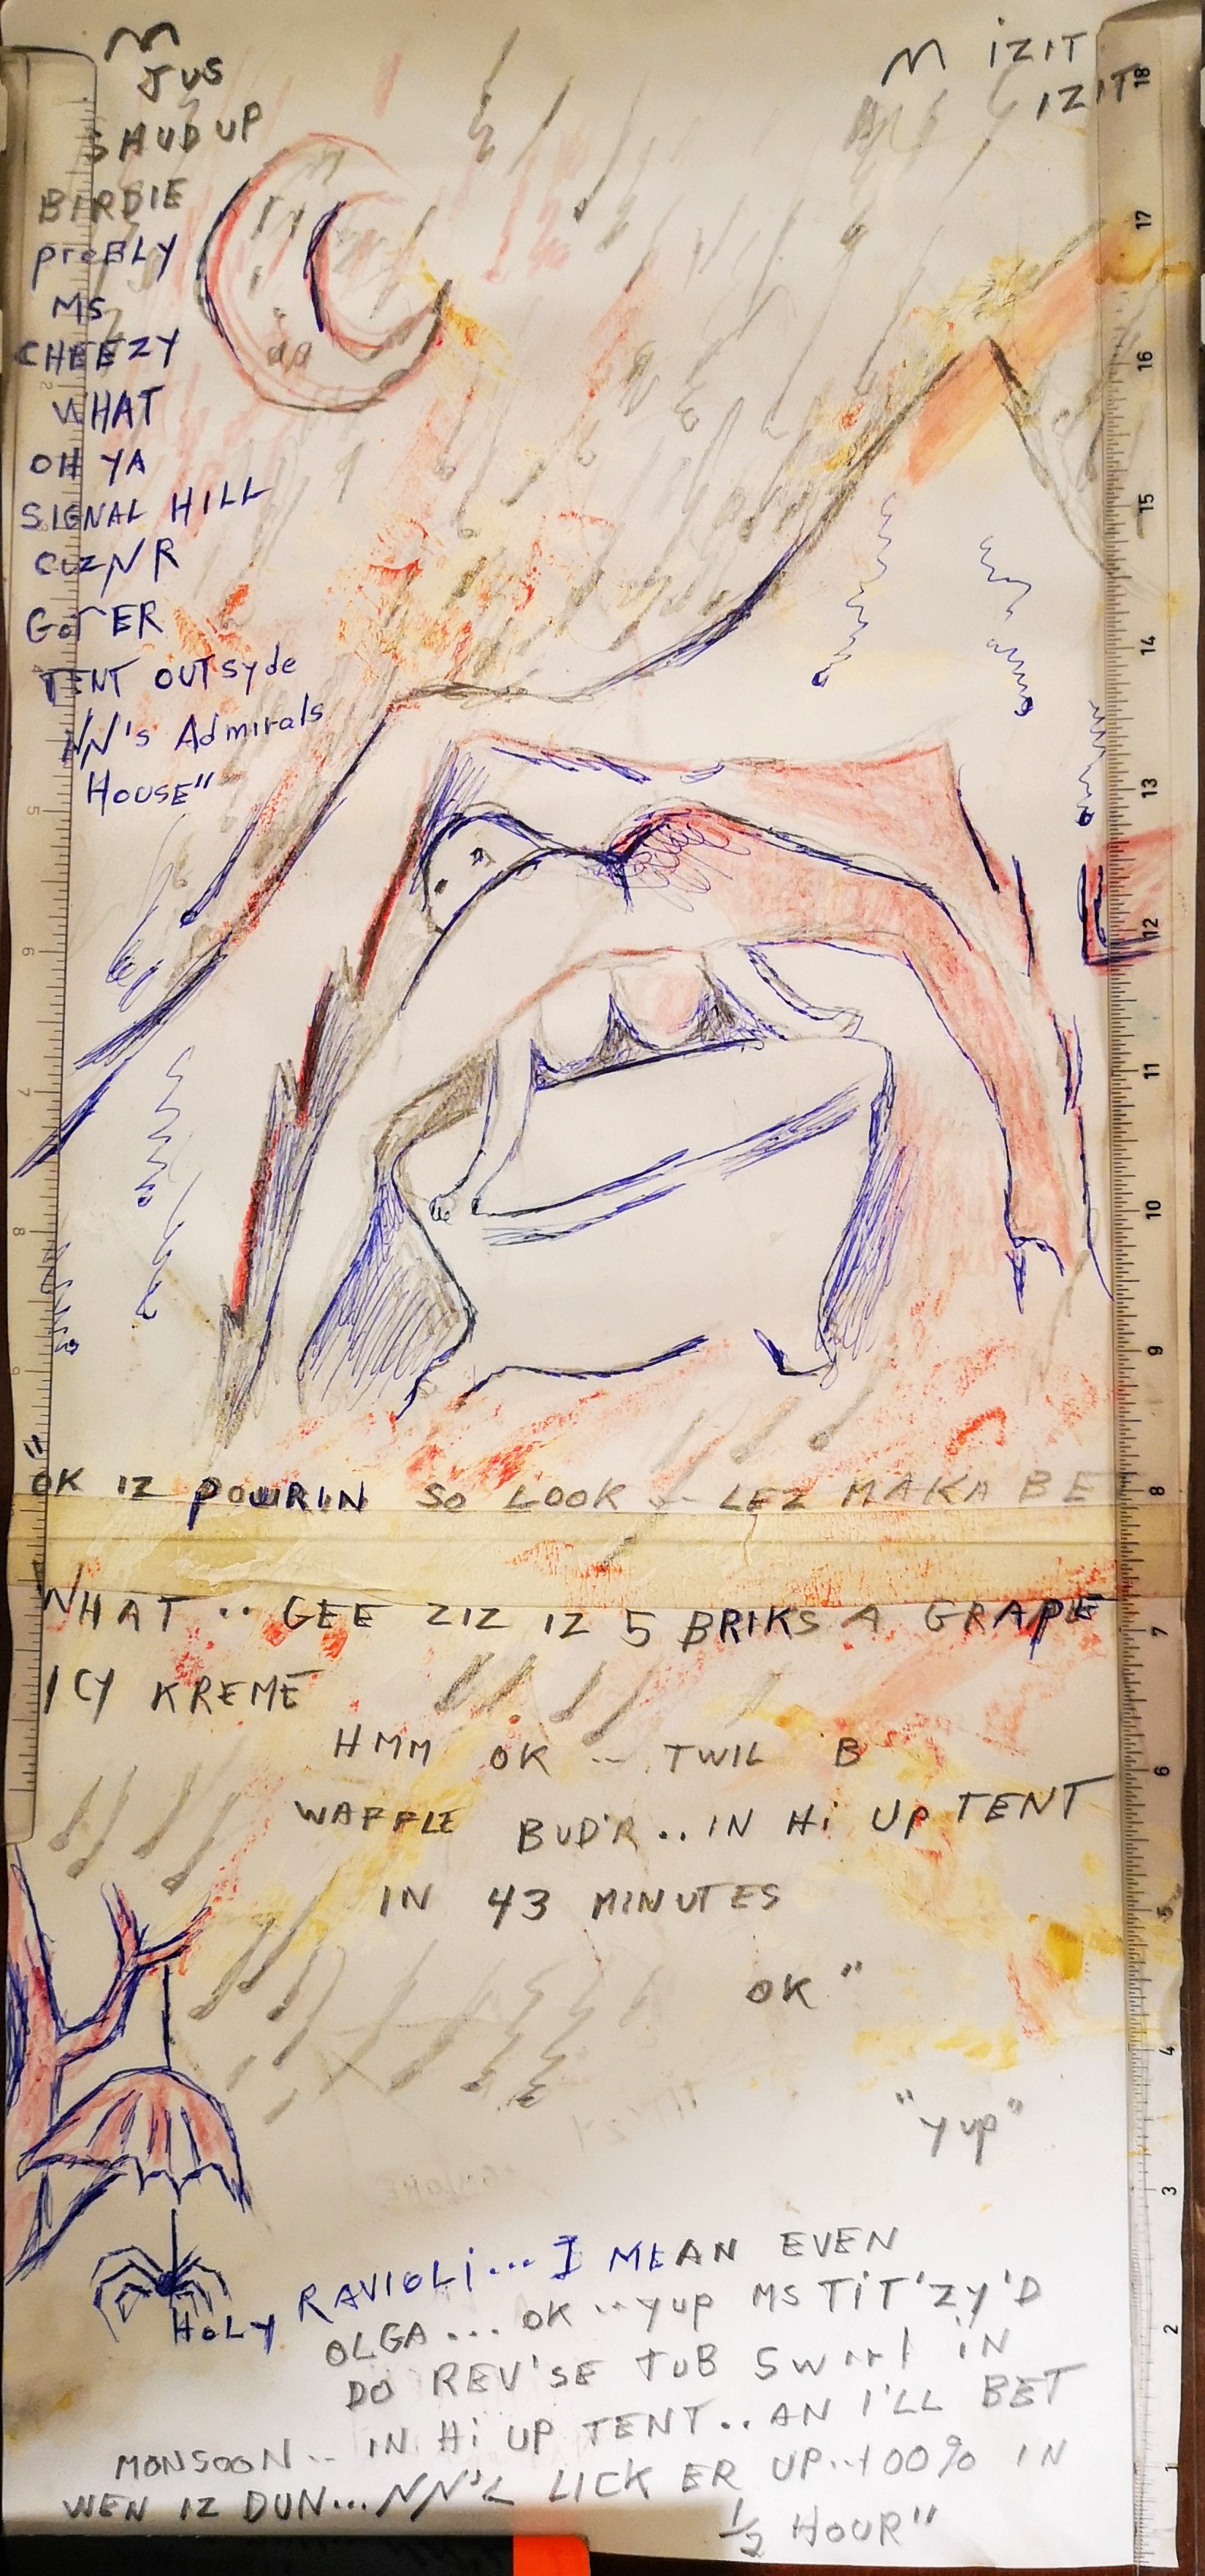 M
JUS
SHUDUP
BIRDIE
preBLY
MS
CHEEZY
WHAT
OH YA
SIGNAL HILL
CUZ NR
GOT ER
TENT OUTSyde
NN's Admirals
House"
M iZIT
IZIT
"OK IZ POWRIN SO LOOK -- LEZ MAKA BE
WHAT .. GEE ZIZ IZ 5 BRIKS A GRAPE
ICY KREME
HMM OK -- TWIL B
WAFFLE BUD'R .. IN Hi UP TENT
IN 43 MINUTES
OK"
"yup"
HOLY RAVIOLi... I MEAN EVEN
OLGA... OK -- yup MS TiT'ZY'D
DO REV'SE TUB SWIRL iN
MONSOON -- IN Hi UP TENT .. AN I'LL BET
WEN IZ DUN... NN'L LICK ER UP .. 100% IN
1/2 HOUR"
18
17
16
15
14
13
12
11
10
9
8
7
6
5
4
3
2
1
5
6
7
8
9